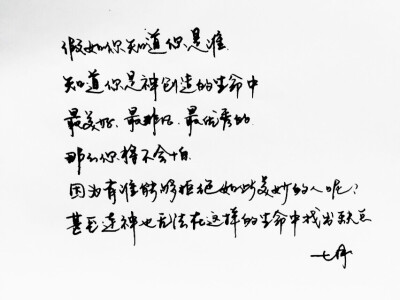 假如你知道你是谁
知道你是神创造的生命中
最美好、最非凡、最优秀的
那么你将不会怕
因为有谁能够拒绝如此美妙的人呢？
甚至连神也无法在这样的生命中找出缺点
七月